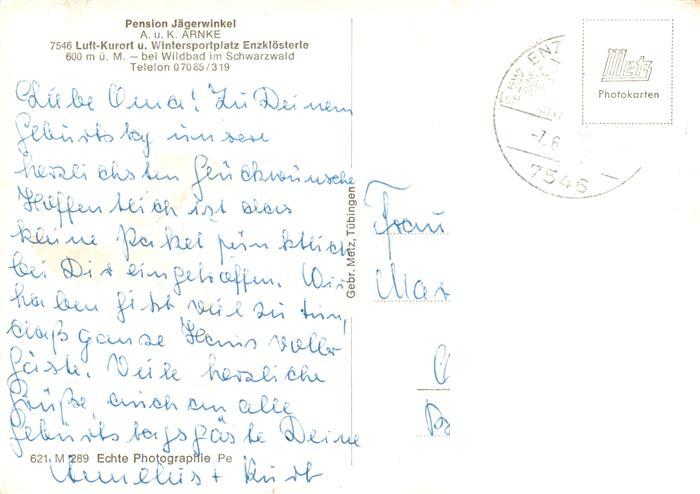 Pension Jägerwinkel
A. u. K. ARNKE
7546 Luft-Kurort u. Wintersportplatz Enzklösterle
600 m ü. M. — bei Wildbad im Schwarzwald
Telefon 07085/319
Liebe Oma! Zu Deinem
Geburtstag unsere
herzlichsten Glückwünsche
Hoffentlich ist das
kleine Paket pünktlich
bei Dir eingetroffen. Wir
haben jetzt viel zu tun,
daß ganze Haus voller
Gäste. Viele herzliche
Grüße, auch an alle
Geburtstagsgäste Deine
Annelies + Kurt
621 M 289 Echte Photographie Pe
Gebr. Metz, Tübingen
ENZ
-7.6
7546
Metz
Photokarten
Frau
Mar